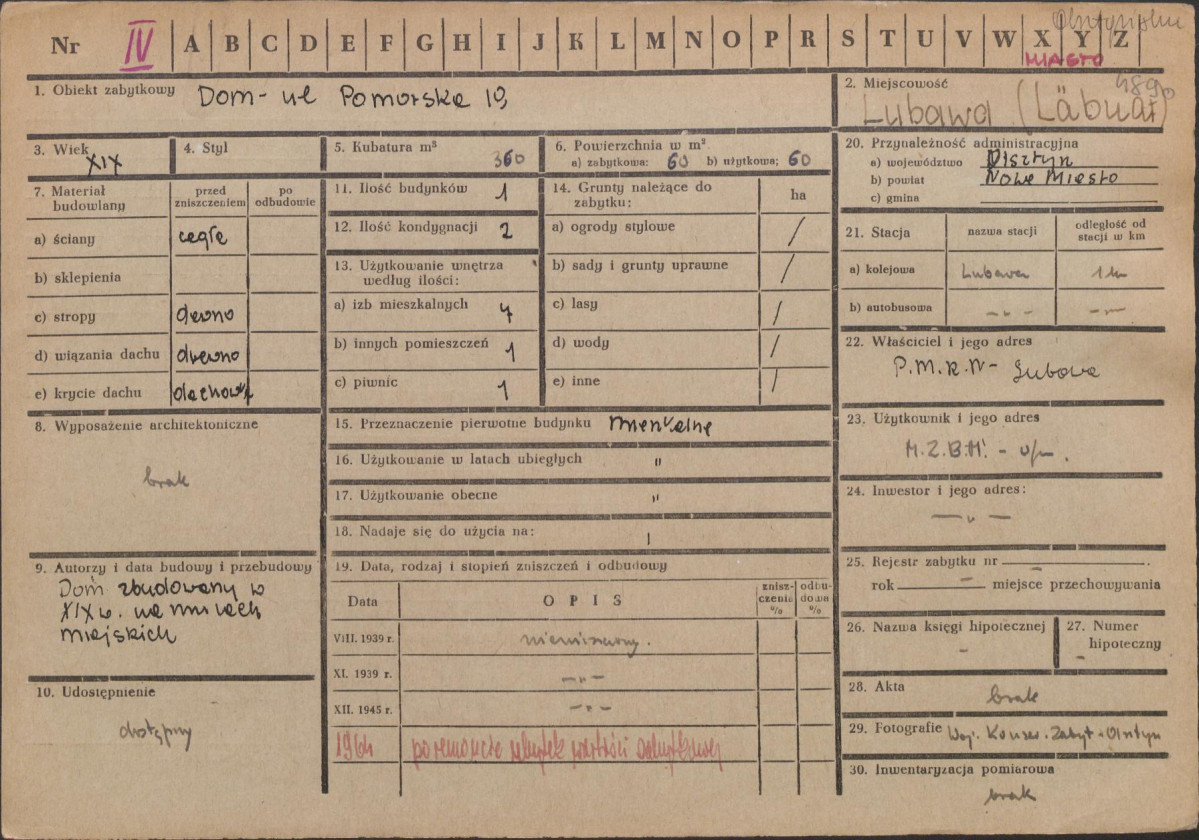 Nr IV A B C D E F G H I J K L M N O P R S T U V W X Y Z
MIASTO
1. Obiekt zabytkowy Dom - ul Pomorska 19
2. Miejscowość
Lubawa
3. Wiek XIX
4. Styl
5. Kubatura m³
360
6. Powierzchnia w m²
a) zabytkowa: 60 b) użytkowa; 60
20. Przynależność administracyjna
a) województwo Olsztyn
b) powiat Nowe Miasto
c) gmina
7. Materiał budowlany
przed zniszczeniem
po odbudowie
a) ściany cegła
b) sklepienia
c) stropy
d) wiązania dachu drewno
e) krycie dachu
8. Wyposażenie architektoniczne
brak
9. Autorzy i data budowy i przebudowy
Dom zbudowany w
XIX w. na murach
miejskich
10. Udostępnienie
dostępny
11. Ilość budynków 1
12. Ilość kondygnacji 2
13. Użytkowanie wnętrza
według ilości:
a) izb mieszkalnych 7
b) innych pomieszczeń 1
c) piwnic 1
14. Grunty należące do
zabytku:
ha
a) ogrody stylowe /
b) sady i grunty uprawne /
c) lasy /
d) wody /
e) inne /
15. Przeznaczenie pierwotne budynku
16. Użytkowanie w latach ubiegłych "
17. Użytkowanie obecne "
18. Nadaje się do użycia na:
19. Data, rodzaj i stopień zniszczeń i odbudowy
Data
O P I S
znisz-
czenia
%
odbu-
dowa
%
VIII. 1939 r.
XI. 1939 r. - " -
XII. 1945 r. - " -
1964 po remoncie wartości zabytkowej
21. Stacja
nazwa stacji
odległość od
stacji w km
a) kolejowa Lubawa 1 km
b) autobusowa - " - - " -
22. Właściciel i jego adres
P.M.R.N - Lubawa
23. Użytkownik i jego adres
M.Z.B.M. -
24. Inwestor i jego adres:
- " -
25. Rejestr zabytku nr -
rok - miejsce przechowywania
26. Nazwa księgi hipotecznej
-
27. Numer
hipoteczny
-
28. Akta
brak
29. Fotografie Woj. Konser. Zabyt - Olsztyn
30. Inwentaryzacja pomiarowa
brak